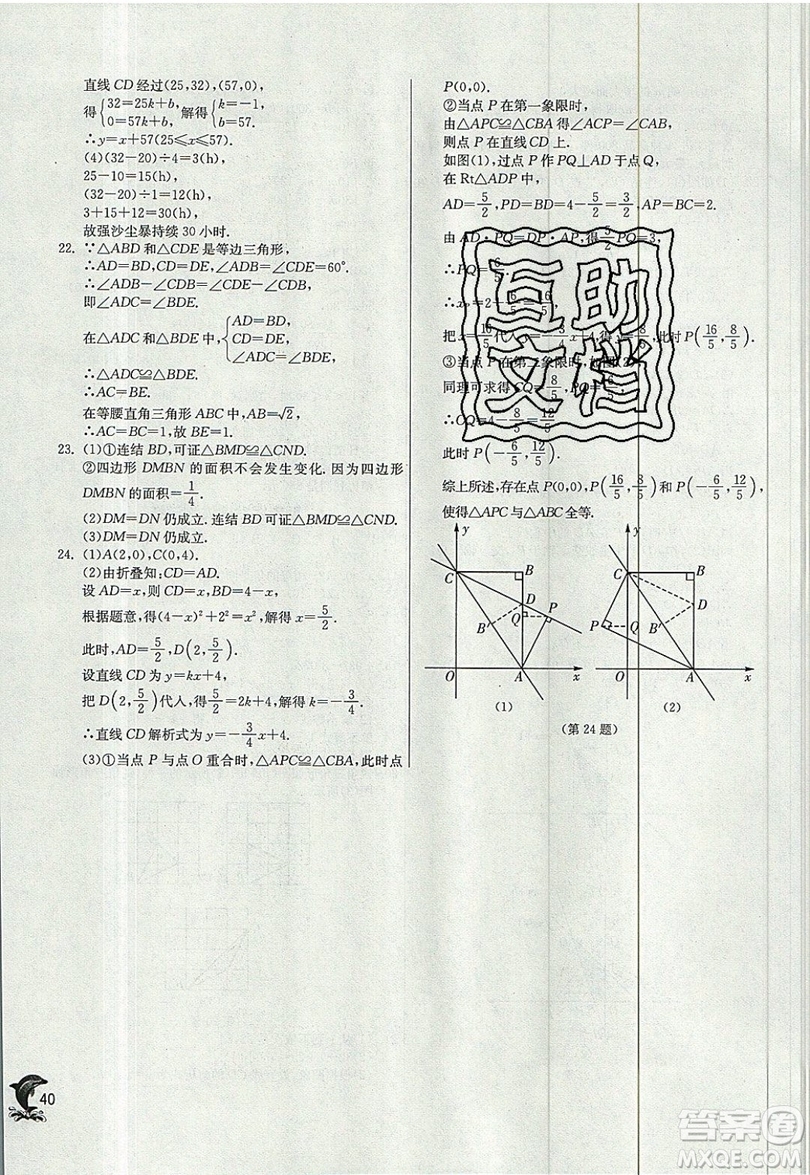 直线 CD 经过(25,32),(57,0),
得{32=25k+b, 0=57k+b, 解得{k=-1, b=57.
∴y=x+57(25≤x≤57).
(4)(32-20)÷4=3(h),
25-10=15(h),
(32-20)÷1=12(h),
3+15+12=30(h),
故强沙尘暴持续 30 小时.
22. ∵△ABD 和△CDE 是等边三角形,
∴AD=BD,CD=DE,∠ADB=∠CDE=60°.
∴∠ADB-∠CDB=∠CDE-∠CDB,
即∠ADC=∠BDE.
在△ADC 和△BDE 中,{AD=BD, CD=DE, ∠ADC=∠BDE,
∴△ADC≌△BDE.
∴AC=BE.
在等腰直角三角形 ABC 中,AB=√2,
∴AC=BC=1,故 BE=1.
23. (1)①连结 BD,可证△BMD≌△CND.
②四边形 DMBN 的面积不会发生变化. 因为四边形
DMBN 的面积=1/4.
(2)DM=DN 仍成立. 连结 BD 可证△BMD≌△CND.
(3)DM=DN 仍成立.
24. (1)A(2,0),C(0,4).
(2)由折叠知:CD=AD.
设 AD=x,则 CD=x,BD=4-x,
根据题意,得(4-x)²+2²=x²,解得 x=5/2.
此时,AD=5/2,D(2,5/2).
设直线 CD 为 y=kx+4,
把 D(2,5/2)代入,得5/2=2k+4,解得 k=-3/4.
∴直线 CD 解析式为 y=-3/4x+4.
(3)①当点 P 与点 O 重合时,△APC≌△CBA,此时点
P(0,0).
②当点 P 在第一象限时,
由△APC≌△CBA 得∠ACP=∠CAB,
则点 P 在直线 CD 上.
如图(1),过点 P 作 PQ⊥AD 于点 Q,
在 Rt△ADP 中,
AD=5/2,PD=BD=4-5/2=3/2,AP=BC=2.
由 AD·PQ=DP·AP,得5/2PQ=3,
∴PQ=6/5.
把 x=16/5代入 此时 P(16/5,8/5).
③当点 P 在第二象限时,如图(2),
同理可求得 CQ=8/5,
∴OQ=4-8/5=12/5.
此时 P(-6/5,12/5).
综上所述,存在点 P(0,0),P(16/5,8/5)和 P(-6/5,12/5),
使得△APC 与△ABC 全等.
互助
文档
y C B D P Q B′ O A x
(1)
y C B D P Q B′ O A x
(2)
(第 24 题)
40
答案圈
MXQE.COM